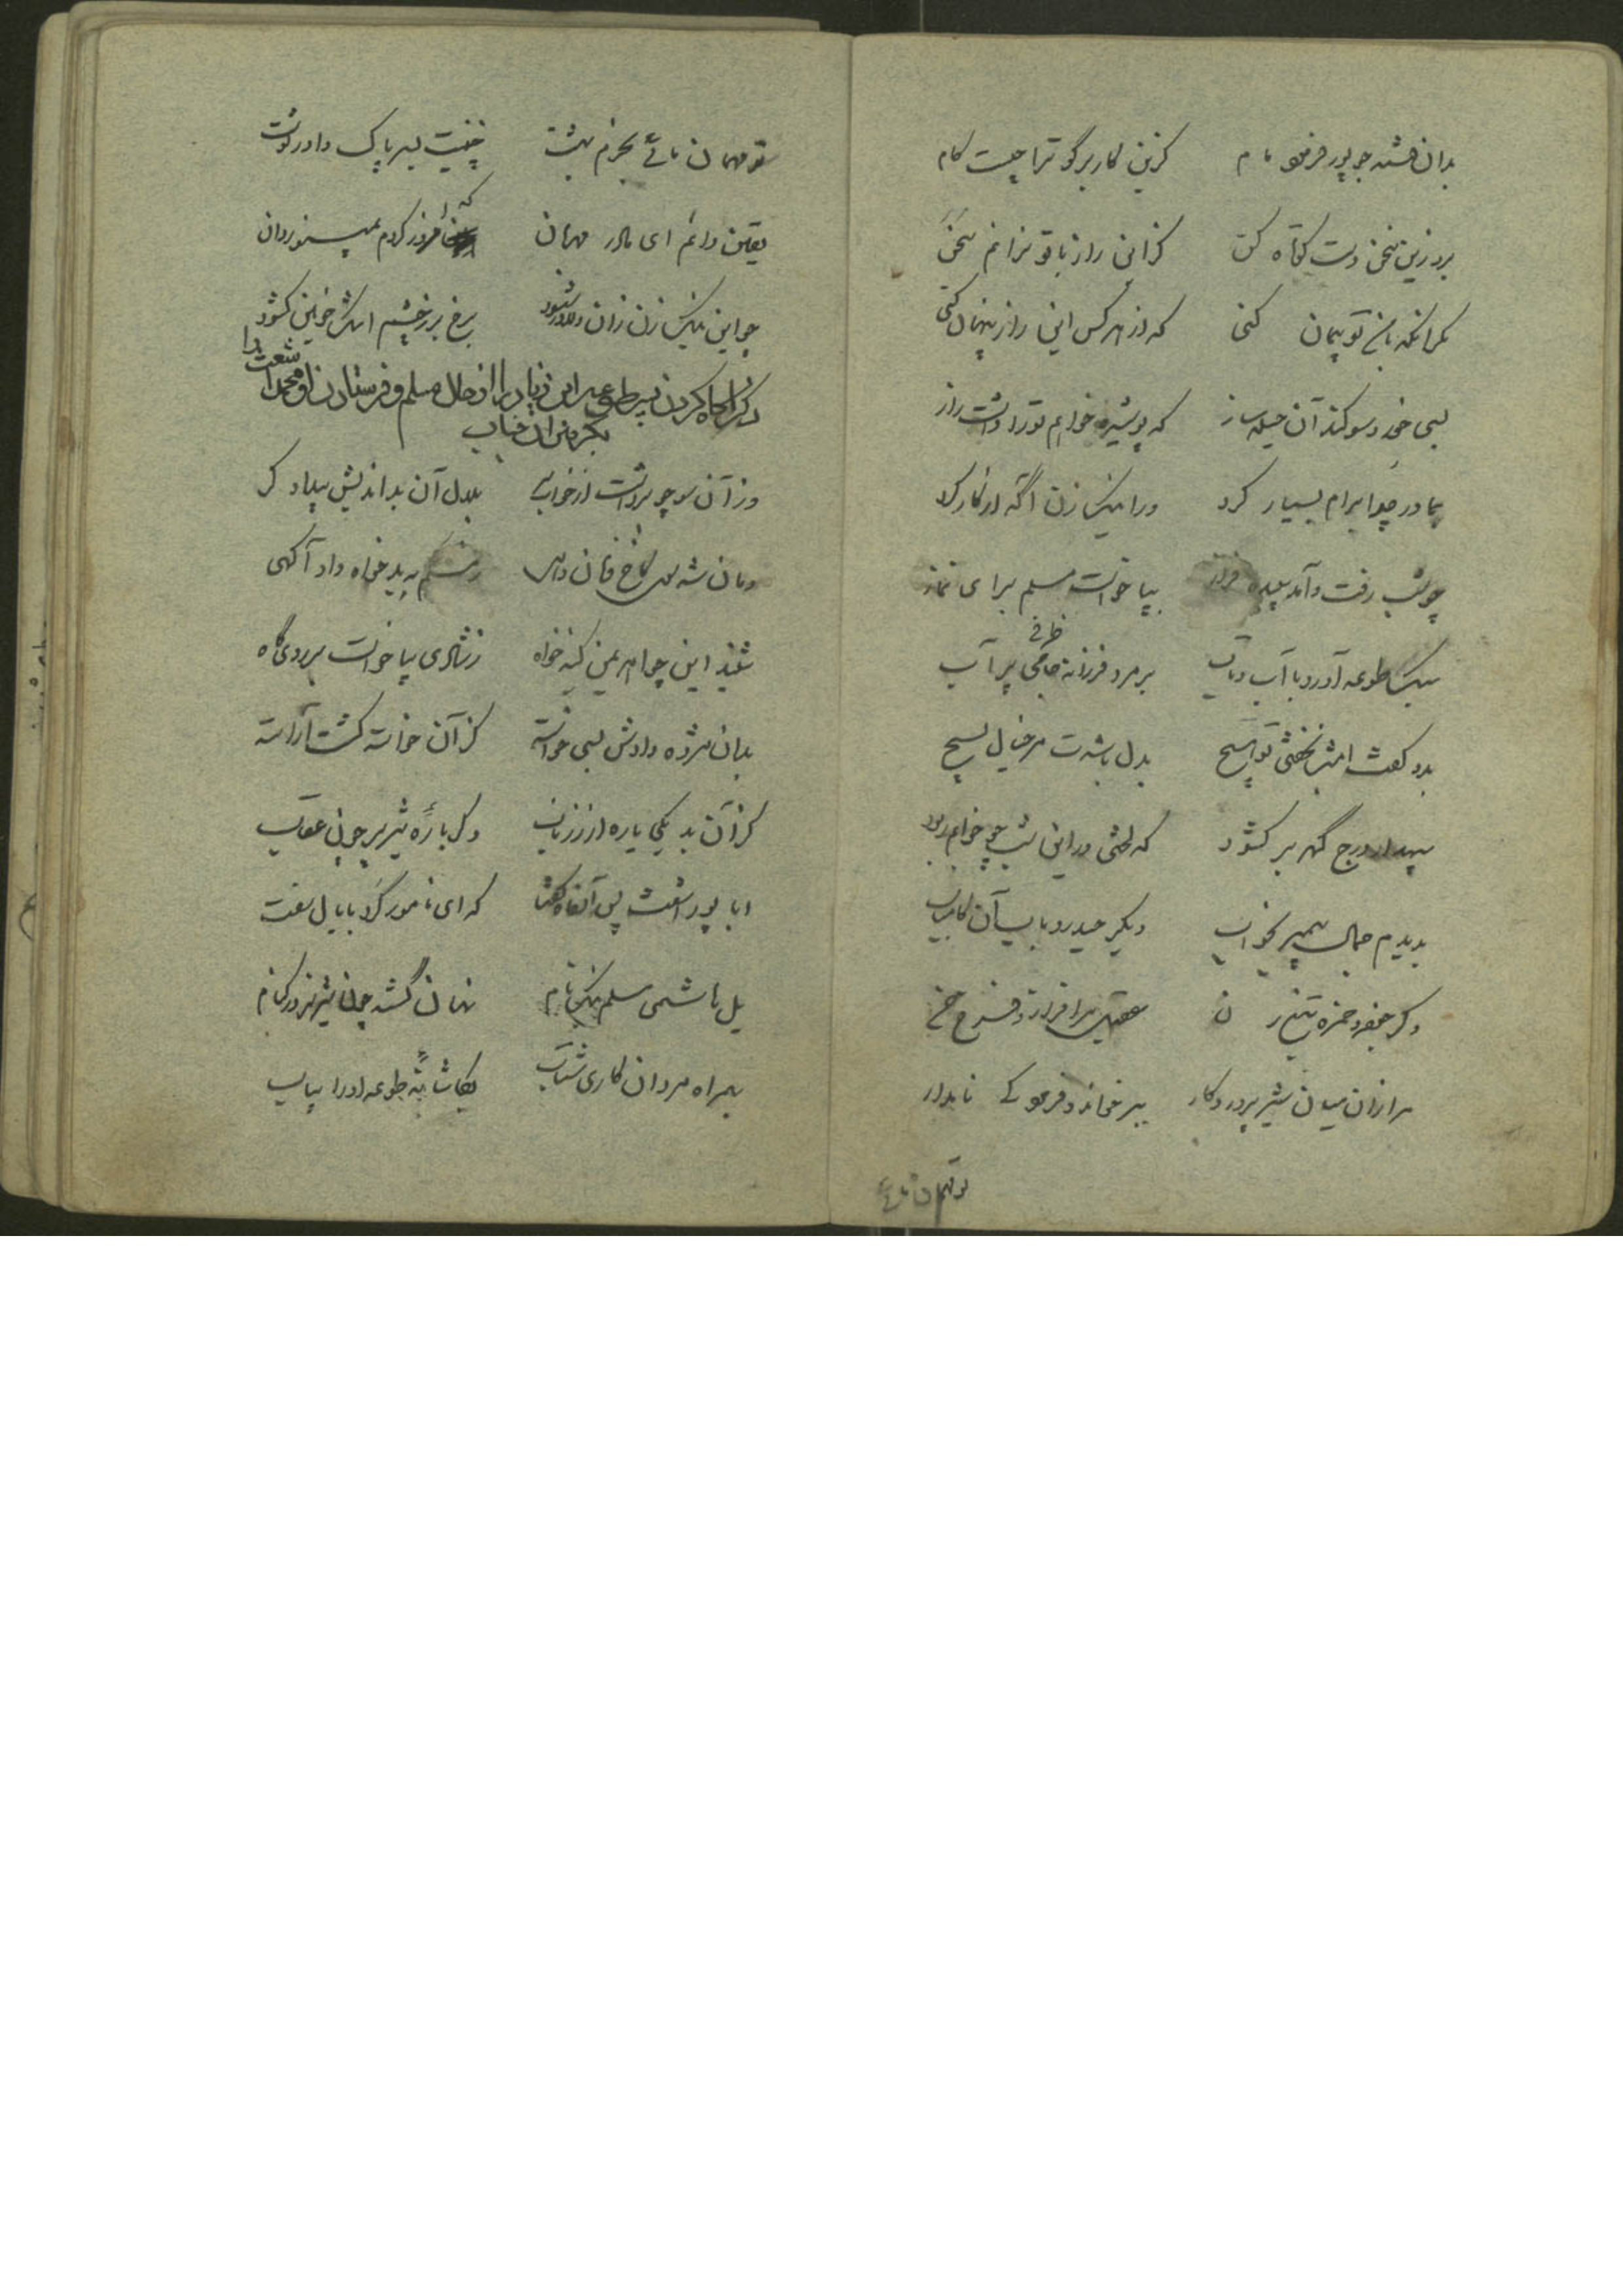 بدان فتنه جو پور فرمود مام کزین کار برگو ترا چیست کام
برو زین سخن دست کوتاه کن کزاین راز با تو نرانم سخن
مگر آنکه با من تو پیمان کنی که از هر کس این راز پنهان کنی
بسی خورد سوکند آن حیله ساز که پوشیده خواهم تو را داشت راز
بمادر چو ابرام بسیار کرد ورا نیک زن آگه از کار کرد
چو شب رفت و آمد سپیده فراز بپا خواست مسلم برای نماز
سبک طوعه آورد با آب و تاب بر مرد فرزانه ظرفی پر آب
بدو گفت امشب نخفتی تو هیچ بدل باشدت مر خیال بسیج
سپهدار درج گهر بر کشود که لختی در این شب چو خوابم ربود
بدیدم جمال پیمبر بخواب دیگر حیدر و باب آن کامیاب
دگر جعفر و حمزه تیغ زن عقیل سرافراز و فرخ حسن
مرا زان میان شیر پروردکار ببر خواند و فرمود کای نامدار
تو مهمان مائی
تو مهمان مائی بخرم بهشت چنینت بسر پاک داور نوشت
یقین دانم ای مادر مهربان که امروز کردم بمینو روان
چو این نیک زن زان دلاور شنود برخ بر ز چشم اشک خونین کشود
ذکر آگاه کردن پسر طوعه ابن زیاد را از حال مسلم و فرستادن او محمد اشعث را
بکرفتن آن جناب
وز آن سو چو برداشت سر از خواب بلال آن بداندیش بیدادگر
دمان شد سوی کاخ فرمان دهی ز مسلم به بدخواه داد آگهی
شنید این چو اهریمن کینه خواه ز شادی بپا خواست بر روی گاه
بدان مژده دادش بسی خواسته کز آن خواسته گشت آراسته
کز آن بد یکی یاره از زر ناب دگر باره تیزپر چون عقاب
ابا پور اشعث پس آنگاه گفت که ای نامور گرد با یال سفت
یل هاشمی مسلم نیک نام نهان گشته چون شیر نر در کنام
بهمراه مردان کاری شتاب بکاشانه طوعه او را بیاب